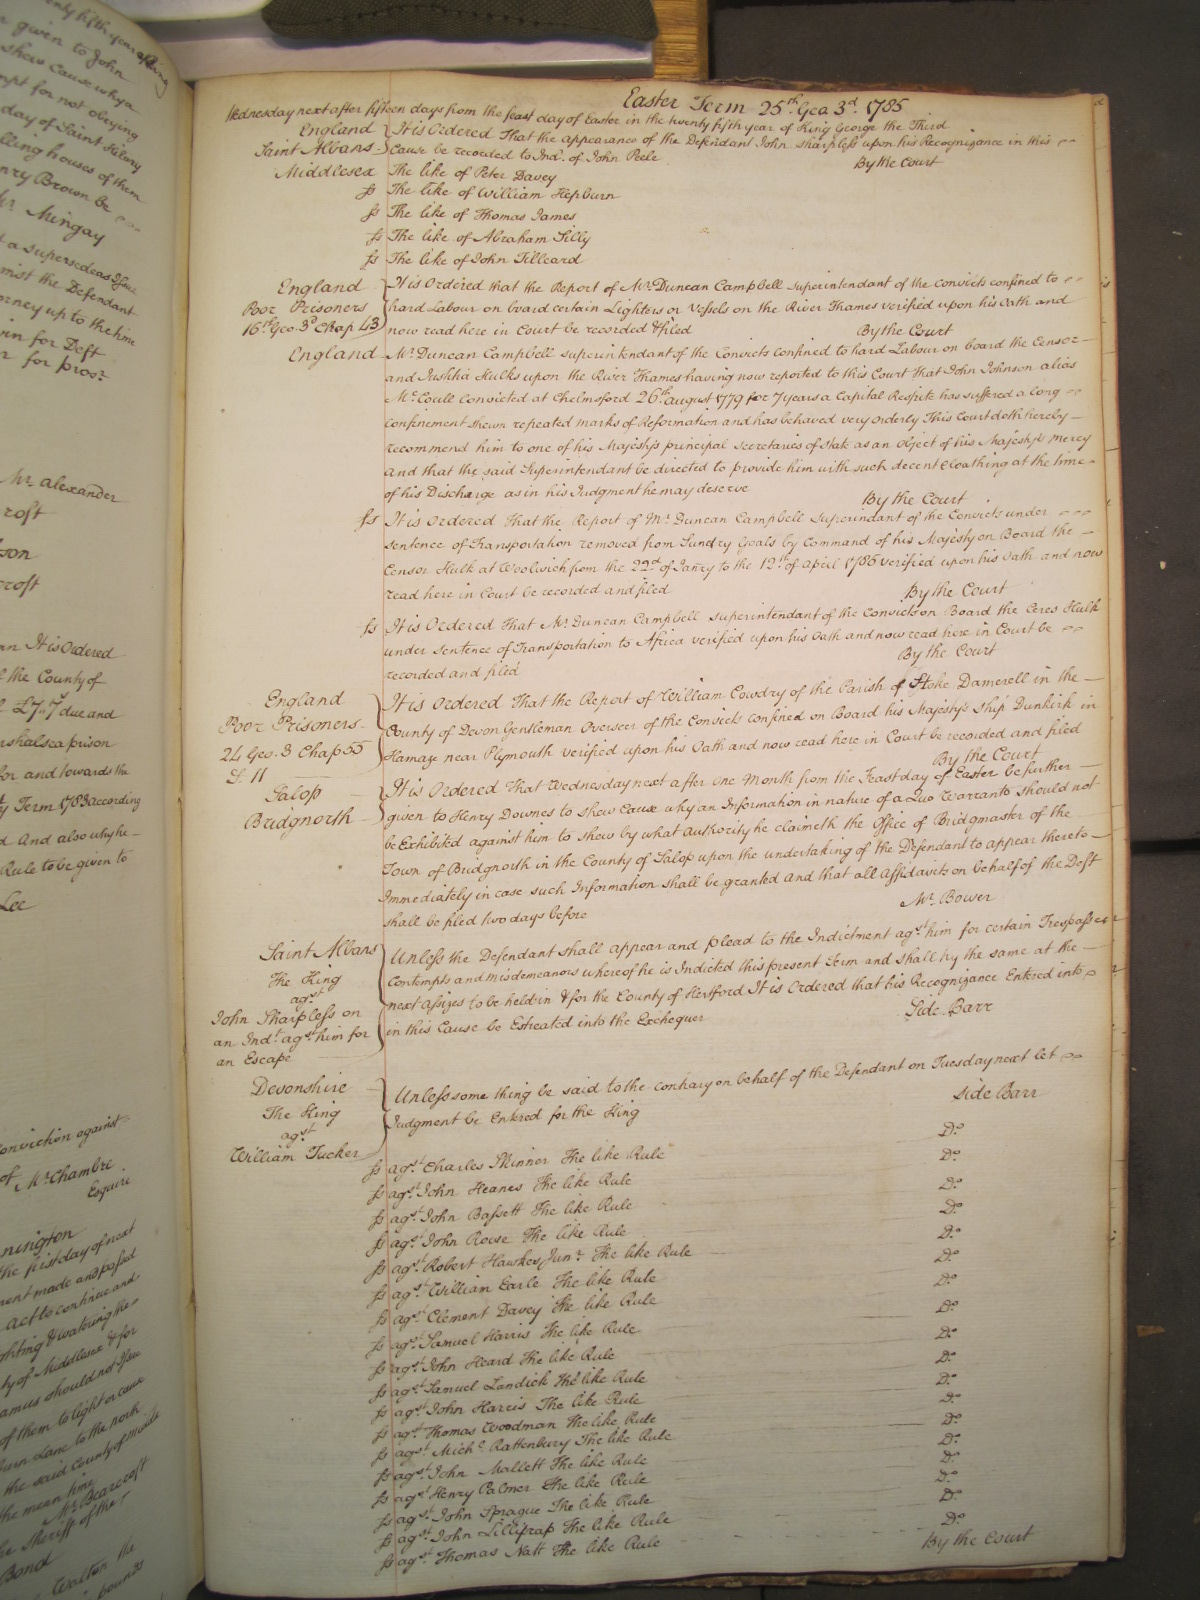 Easter Term 25th Geo 3d. 1785
Wednesday next after fifteen days from the feast day of Easter in the twenty fifth year of King George the Third
England It is Ordered That the appearance of the Defendant John Sharpless upon his Recognizance in this
Saint Albans Cause be recorded to Indt. of John Peele By the Court
Middlesex The like of Peter Davey
ss The like of William Hepburn
ss The like of Thomas James
ss The like of Abraham Silly
ss The like of John Tilleard
England It is Ordered that the Report of Mr. Duncan Campbell Superintendant of the Convicts confined to
Poor Prisoners hard Labour on board certain Lighters or Vessels on the River Thames verified upon his Oath and
16th Geo. 3d Chap 43 now read here in Court be recorded & filed By the Court
England Mr. Duncan Campbell superintendant of the Convicts confined to hard Labour on board the Censor
and Justitia Hulks upon the River Thames having now reported to this Court That John Johnson alias
Mc.Coull Convicted at Chelmsford 26th August 1779 for 7 years a Capital Respite has suffered a long
confinement shewn repeated marks of Reformation and has behaved very orderly This Court doth hereby
recommend him to one of his Majesty's principal Secretaries of State as an Object of his Majesty's mercy
and that the said Superintendant be directed to provide him with such decent Cloathing at the time
of his Discharge as in his Judgment he may deserve By the Court
ss It is Ordered That the Report of Mr. Duncan Campbell Superindant of the Convicts under
sentence of Transportation removed from Sundry Goals by Command of his Majesty on Board the
Censor Hulk at Woolwich from the 22d of Janry to the 12th of April 1785 verified upon his Oath and now
read here in Court be recorded and filed By the Court
ss It is Ordered That Mr. Duncan Campbell Superintendant of the Convicts on Board the Ceres Hulk
under sentence of Transportation to Africa verified upon his Oath and now read here in Court be
recorded and filed By the Court
England It is Ordered That the Report of William Cowdry of the Parish of Stoke Damerell in the
Poor Prisoners County of Devon Gentleman Overseer of the Convicts confined on Board his Majesty's Ship Dunkirk in
24 Geo. 3 Chap 55 Hamaze near Plymouth verified upon his Oath and now read here in Court be recorded and filed
S. 11 By the Court
Salop It is Ordered That Wednesday next after one Month from the Feast day of Easter be further
Bridgnorth given to Henry Downes to shew Cause why an Information in nature of a Quo Warranto should not
be Exhibited against him to shew by what Authority he claimeth the Office of Bridgmaster of the
Town of Bridgnorth in the County of Salop upon the undertaking of the Defendant to appear thereto
Immediately in case such Information shall be granted and that all Affidavits on behalf of the Deft
shall be filed two days before Mr. Bower
Saint Albans Unless the Defendant shall appear and plead to the Indictment agst him for certain Trespasses
The King Contempts and Misdemeanors whereof he is Indicted this present Term and shall try the same at the
agst next Assizes to be held in & for the County of Hertford It is Ordered that his Recognizance Entered into
John Sharpless on in this Cause be Estreated into the Exchequer Side Barr
an Indt agst him for
an Escape
Devonshire Unless some thing be said to the contrary on behalf of the Defendant on Tuesday next let
The King Judgment be Entered for the King Side Barr
agst
William Tucker
ss agst. Charles Skinner The like Rule Do.
ss agst. John Heanes The like Rule Do.
ss agst. John Bassett The like Rule Do.
ss agst. John Rowse The like Rule Do.
ss agst. Robert Hawkes Junr. The like Rule Do.
ss agst. William Earle The like Rule Do.
ss agst. Clement Davey The like Rule Do.
ss agst. Samuel Harris The like Rule Do.
ss agst. John Heard The like Rule Do.
ss agst. Samuel Landick The like Rule Do.
ss agst. John Harris The like Rule Do.
ss agst. Thomas Woodman The like Rule Do.
ss agst. Michl. Rattenbury The like Rule Do.
ss agst. John Mallett The like Rule Do.
ss agst. Henry Palmer The like Rule Do.
ss agst. John Sprague The like Rule Do.
ss agst. John Lillitrap The like Rule Do.
ss agst. Thomas Natt The like Rule By the Court
given to John
shew cause why a
for not obeying
day of Saint Hilary
dwelling houses of them
Henry Brown be
Mr. Mingay
a supersedeas
against the Defendant
up to the time
for Deft
for prosr.
Mr. Alexander
It is Ordered
the County of
£7"7 due and
Marshalsea prison
for and towards the
Term 1783 according
And also why he
Rule to be given to
Lee
Conviction against
of Mr Chambre
Esquire
the first day of next
made and passed
act to continue and
lighting & watering the
of Middlesex & for
should not Issue
of them to light or cause
Lane to the north
the said County of
the mean time
Mr. Bearcroft
Sheriff of the
Bond
Walter the
pounds